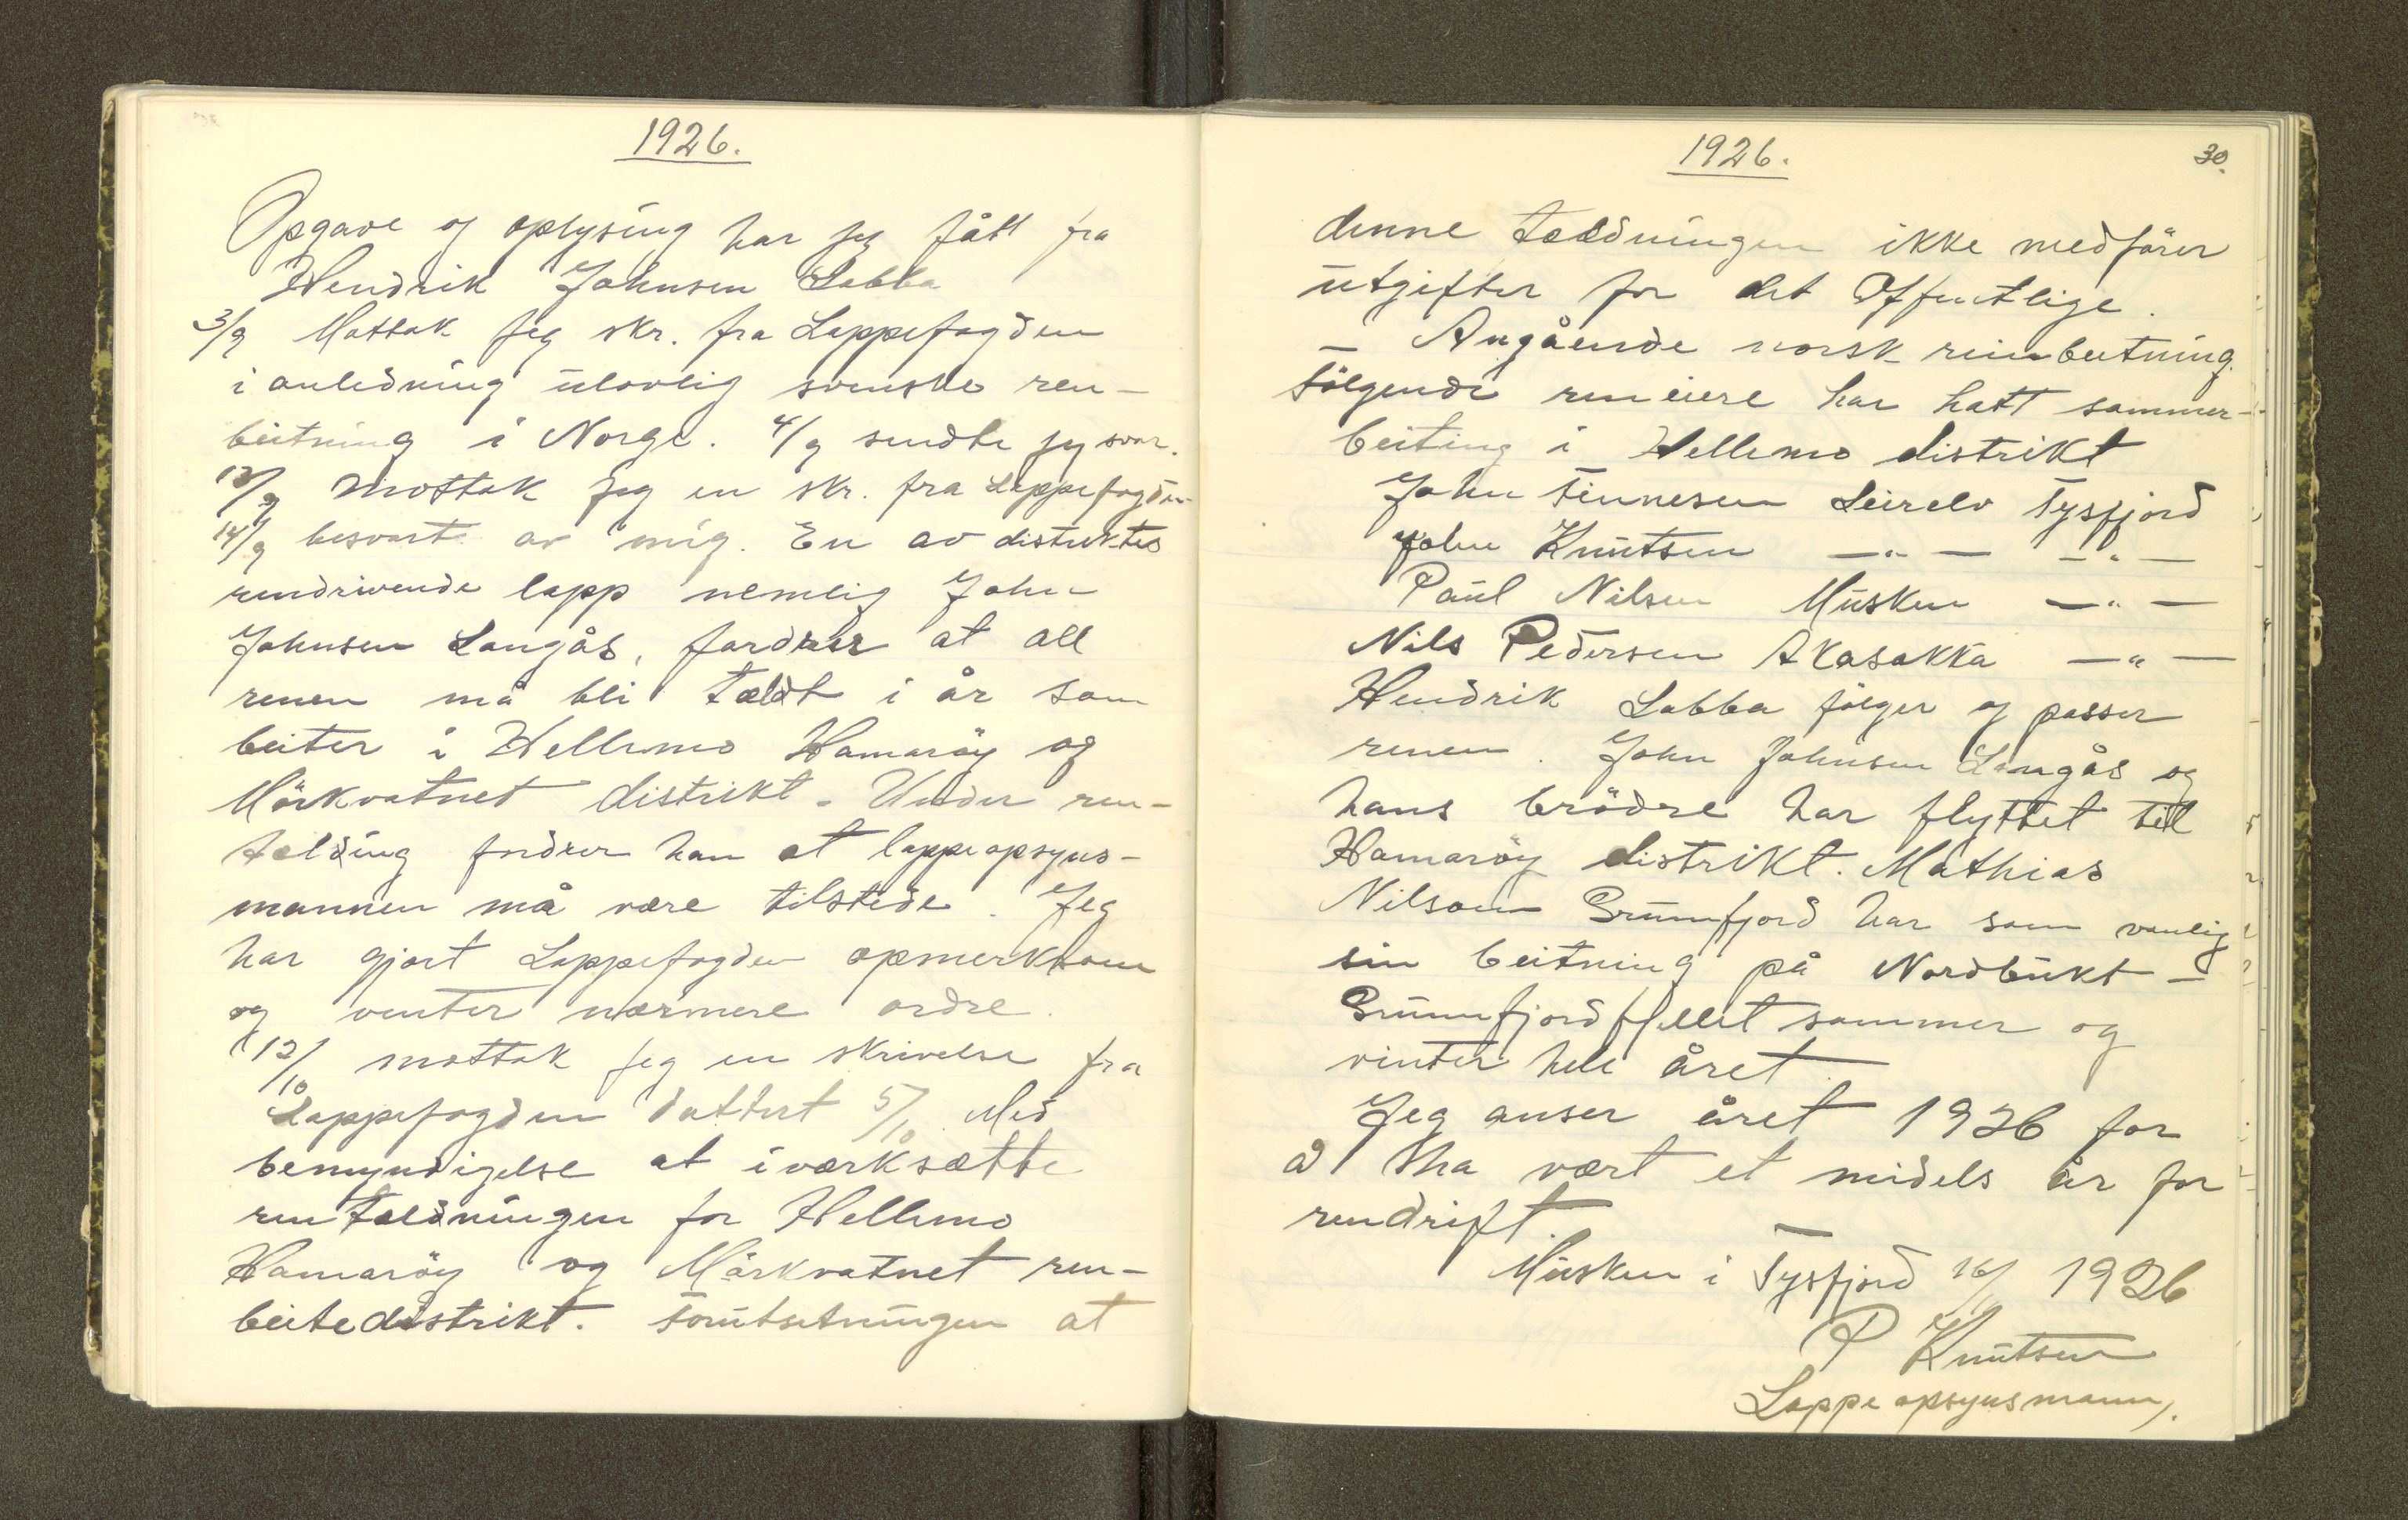 1926.
Opgave og oplysing har jeg fått fra
Hendrik Johnsen Labba
3/9 Mottok jeg skr. fra Lappefogden
i anledning ulovlig svenske ren-
beitning i Norge. 4/9 sendte jeg svar.
13/9 mottok jeg en skr. fra Lappefogden
14/9 besvart av mig. En av distriktes
rendrivende lapp nemlig John
Johnsen Langås, fordrer at all
renen må bli tældt i år som
beiter i Hellemo Hamaröy og
Mörkvatnet distrikt. Under ren-
tælding fordrer han at lappeopsyns-
mannen må være tilstede. Jeg
har gjort Lappefogden opmerksom
og venter nærmere ordre.
12/10 mottok jeg en skrivelse fra
Lappefogden dattert 5/10. Med
bemyndigelse at iværksætte
rentældningen for Hellemo
Hamaröy og Mörkvatnet ren-
beitedistrikt. Forutsetningen at
1926.
30.
denne tældningen ikke medförer
utgifter for det Offentlige.
– Angående norsk reinbeitning.
Fölgende reneiere har hatt sommer-
beiting i Hellemo distrikt
John Finnesen Leirelv Tysfjord
John Knutsen —"— —"—
Paul Nilsen Musken —"—
Nils Pedersen Akasakka —"—
Hendrik Labba fölger og passer
renen. John Johnsen Langås og
hans brödre har flyttet til
Hamaröy distrikt. Mathias
Nilsen Grunnfjord har som vanlig
sin beitning på Nordbukt –
Grunnfjordfjellet sommer og
vinter hele året.
Jeg anser året 1926 for
å ha vært et midels år for
rendrift.
Musken i Tysfjord 16/ 1926
P Knutsen
Lappeopsynsmann.